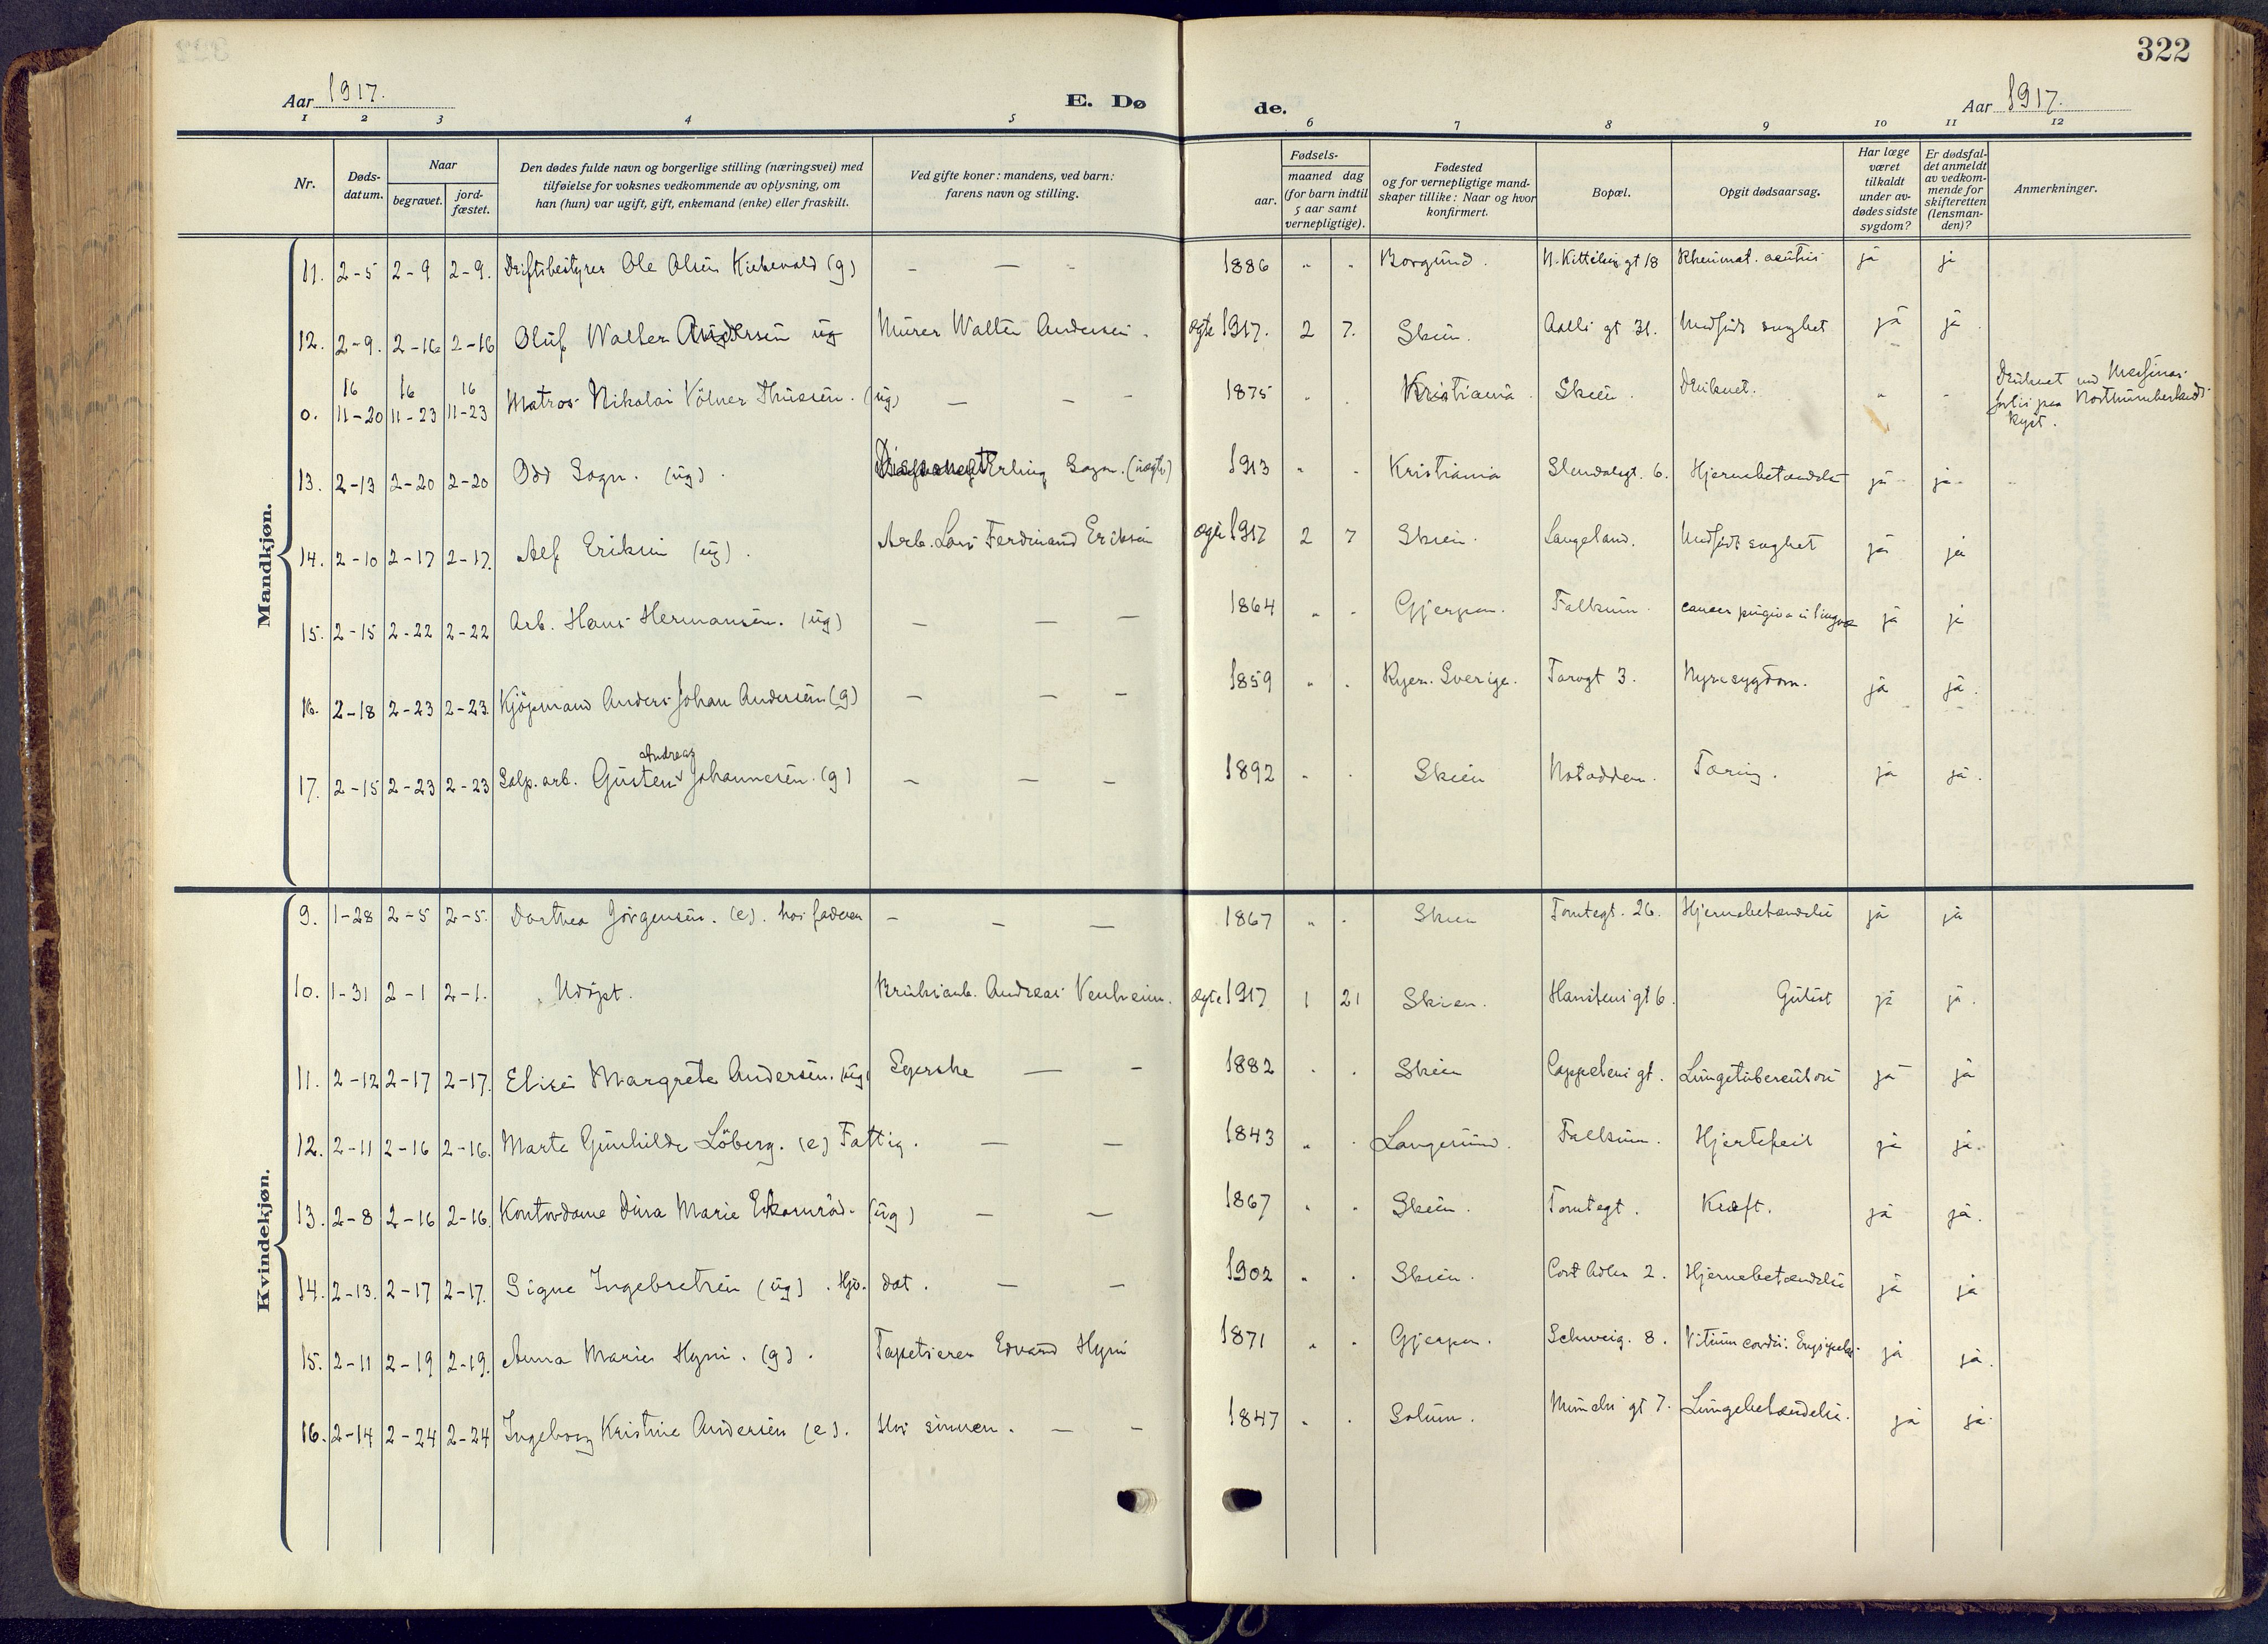 322
Aar 1917.
E. Dø
de.
Aar 1917.
1 2 3 4 5 6 7 8 9 10 11 12
Nr.
Døds-
datum.
Naar
begravet.
jord-
fæstet.
Den dødes fulde navn og borgerlige stilling (næringsvei) med
tilføielse for voksnes vedkommende av oplysning, om
han (hun) var ugift, gift, enkemand (enke) eller fraskilt.
Ved gifte koner: mandens, ved barn:
farens navn og stilling.
Fødsels-
aar.
maaned dag
(for barn indtil
5 aar samt
vernepligtige).
Fødested
og for vernepligtige mand-
skaper tillike: Naar og hvor
konfirmert.
Bopæl.
Opgit dødsaarsag.
Har læge
været
tilkaldt
under av-
dødes sidste
sygdom?
Er dødsfal-
det anmeldt
av vedkom-
mende for
skifteretten
(lensman-
den)?
Anmerkninger.
Mandkjøn.
11. 2-5 2-9 2-9. Driftsbestyrer Ole Olsen (g) - — - 1886 " " Borgund. gt 18 Rheumat. ja ja
12. 2-9. 2-16 2-16 Oluf Walter Andersen ug Murer Walter Andersen. ægte 1917. 2 7. Skien. Aalls gt 31. Medfødt svaghet ja ja.
16 16 16
0. 11-20 11-23 11-23 Matros Nikolai Thuesen. (ug) — - - 1875 " . Kristiania. Skien. Druknet. " - Druknet ved
paa Northumberlands
kyst.
13. 2-13 2-20 2-20 Odd Sogn. (ug). Disponent Erling Sogn. (uægte) 1913 " . Kristiania 6. Hjernebetændelse ja ja
14. 2-10 2-17 2-17. Alf Eriksen (ug). Arb. Lars Ferdinand Eriksen ægte 1917 2 7 Skien. Langeland. Medfødt svaghet ja ja
15. 2-15 2-22 2-22 Arb. Hans Hermansen. (ug) — — — 1864 " . Gjerpen. Falkum. cancer ja ja
16. 2-18 2-23 2-23. Kjøpmand Anders Johan Andersen (g) — — - 1859 " . Sverige. Torvgt 3. Nyresygdom. ja ja.
Andreas
17. 2-15 2-23 2-23 Salp. arb. Gusten Johannesen. (g) — — — 1892 " . Skien Notodden. Tæring. ja ja.
Kvindekjøn.
9. 1-28 2-5 2-5. Dorthea Jørgensen. (e). hos faderen - — — 1867 " . Skien Tomtegt. 26. Hjernebetændelse ja ja
10. 1-31 2-1 2-1. Udøpt. Andreas Venheim. ægte 1917 1 21 Skien. gt 6. Gulsot ja ja.
11. 2-12 2-17 2-17. Elise Margrete Andersen. (ug) Syerske — - 1882 . . Skien Cappelens gt. Lungetuberculose ja ja
12. 2-11 2-16 2-16. Marte Gunhilde Löberg. (e) Fattig. — — 1843 " . Langesund. Falkum. Hjertefeil ja ja.
13. 2-8 2-16 2-16. Kontordame Dina Marie (ug) — — 1867 " . Skien. Tomtegt. Kræft. ja ja.
14. 2-13. 2-17 2-17. Signe Ingebretsen (ug). Hjv. dat. — - 1902 " . Skien. Cort Adler 2. Hjernebetændelse ja ja
15. 2-11 2-19 2-19. Anna Marie Hyni. (g). Tapetserer Edvard Hyni 1871 " . Gjerpen. Schweig. 8. Vitium cordis: Erysipelas. ja ja.
16. 2-14 2-24 2-24 Ingeborg Kristine Andersen (e). Hos sønnen. — - 1847 " . Solum. Munchs gt 7. Lungebetændelse. ja ja.